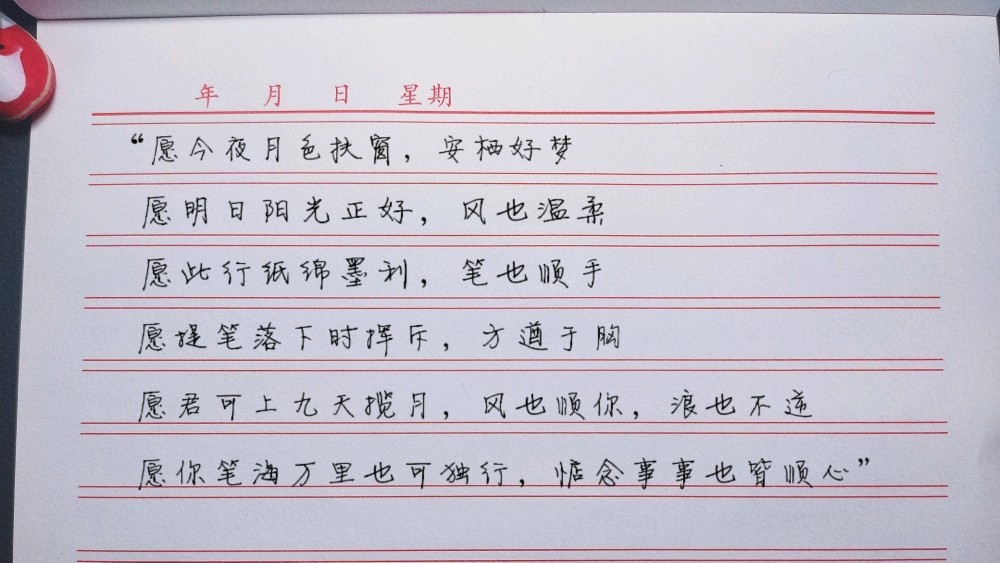 年 月 日 星期
“愿今夜月色扶窗，安栖好梦
愿明日阳光正好，风也温柔
愿此行纸绵墨利，笔也顺手
愿提笔落下时挥斥，方遒于胸
愿君可上九天揽月，风也顺你，浪也不逆
愿你笔海万里也可独行，惦念事事也皆顺心”